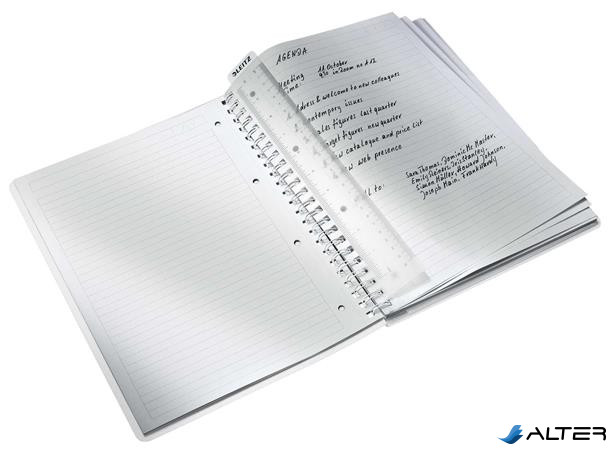 LEITZ
AGENDA
Meeting 11. October
Time: 9 30 in Room no 112
dress & welcome to new colleagues
ontemporary issues
ales figures last quarter
rget figures new quarter
w catalogue and price list
w web presence
ll to:
Sara Thomas, Dominic Mc Master,
Emily Reiners, Iris Stanley,
Simon Müller, Howard Johnson,
Joseph Main, Frank Hardy
ALTER